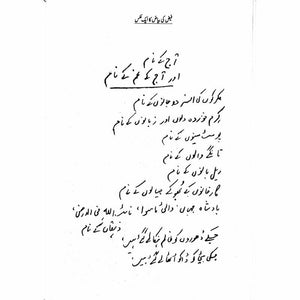 فیض کی بیاض کا ایک عکس
آج کے نام
اور آج کے غم کے نام
کلرکوں کی افسردہ جانوں کے نام
کرم خوردہ دلوں اور زبانوں کے نام
پوسٹ مینوں کے نام
تانگے والوں کے نام
ریل بانوں کے نام
کارخانوں کے بھوکے جیالوں کے نام
بادشاہ جہاں، والئ ماسوا، نائب اللہ فی الارض،
دہقاں کے نام
جسکے ڈھوروں کو ظالم ہنکا لے گئے ہیں
جسکی بیٹی کو ڈاکو اٹھا لے گئے ہیں